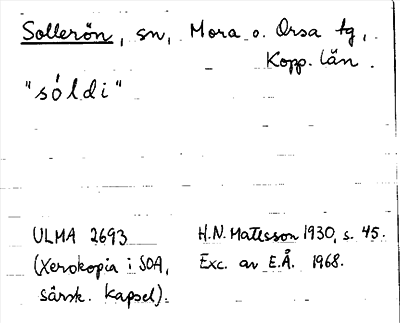 Sollerön, sn, Mora o. Orsa tg,
Kopp. län.
"sóldi"
ULMA 2693
(Xerokopia i SOA,
särsk. kapsel).
H.N. Matsson 1930, s. 45.
Exc. av E.Å. 1968.